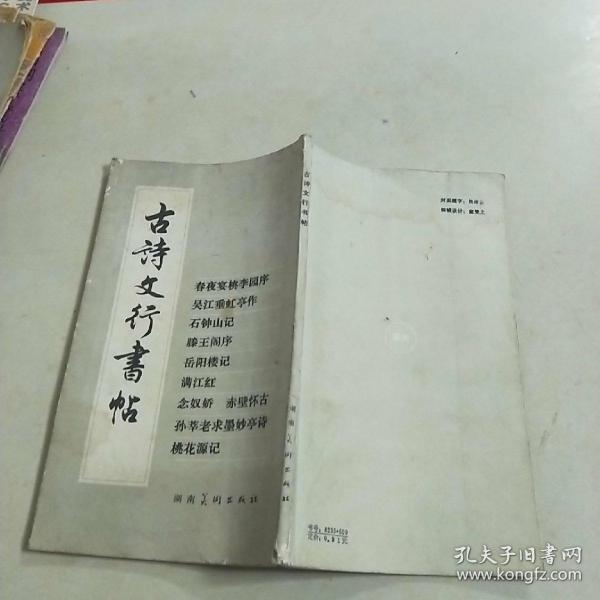 古詩文行書帖
春夜宴桃李园序
吴江垂虹亭作
石钟山记
滕王阁序
岳阳楼记
满江红
念奴娇 赤壁怀古
孙莘老求墨妙亭诗
桃花源记
湖南美术出版社
古诗文行书帖
湖南美术出版社
封面题字：
装帧设计：
书号：8233·509
定价：0.91元
孔夫子旧书网
www.kongfz.com